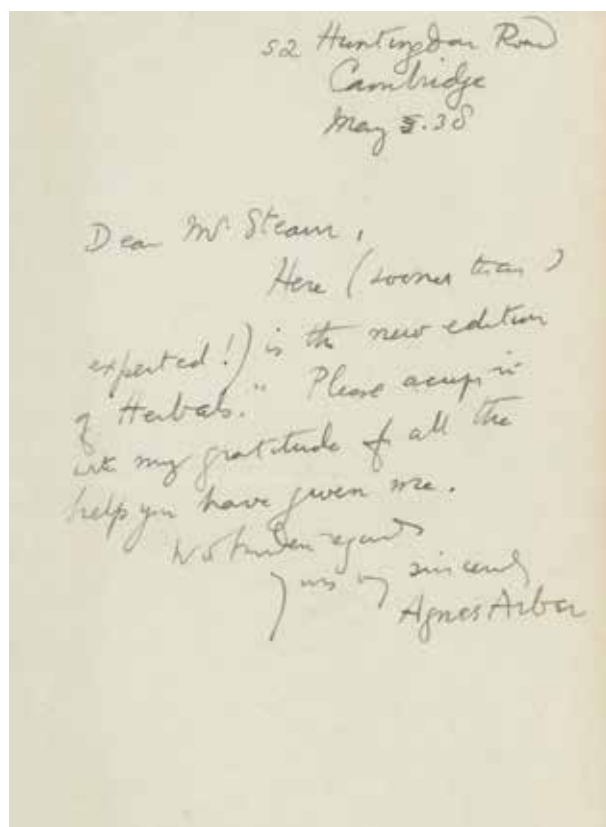 52 Huntingdon Road
Cambridge
May 5.38
Dear Mr Stearn,
Here (sooner than
expected!) is the new edition
of "Herbals." Please accept it
with my gratitude for all the
help you have given me.
With kindest regards
Yours v sincerely
Agnes Arber